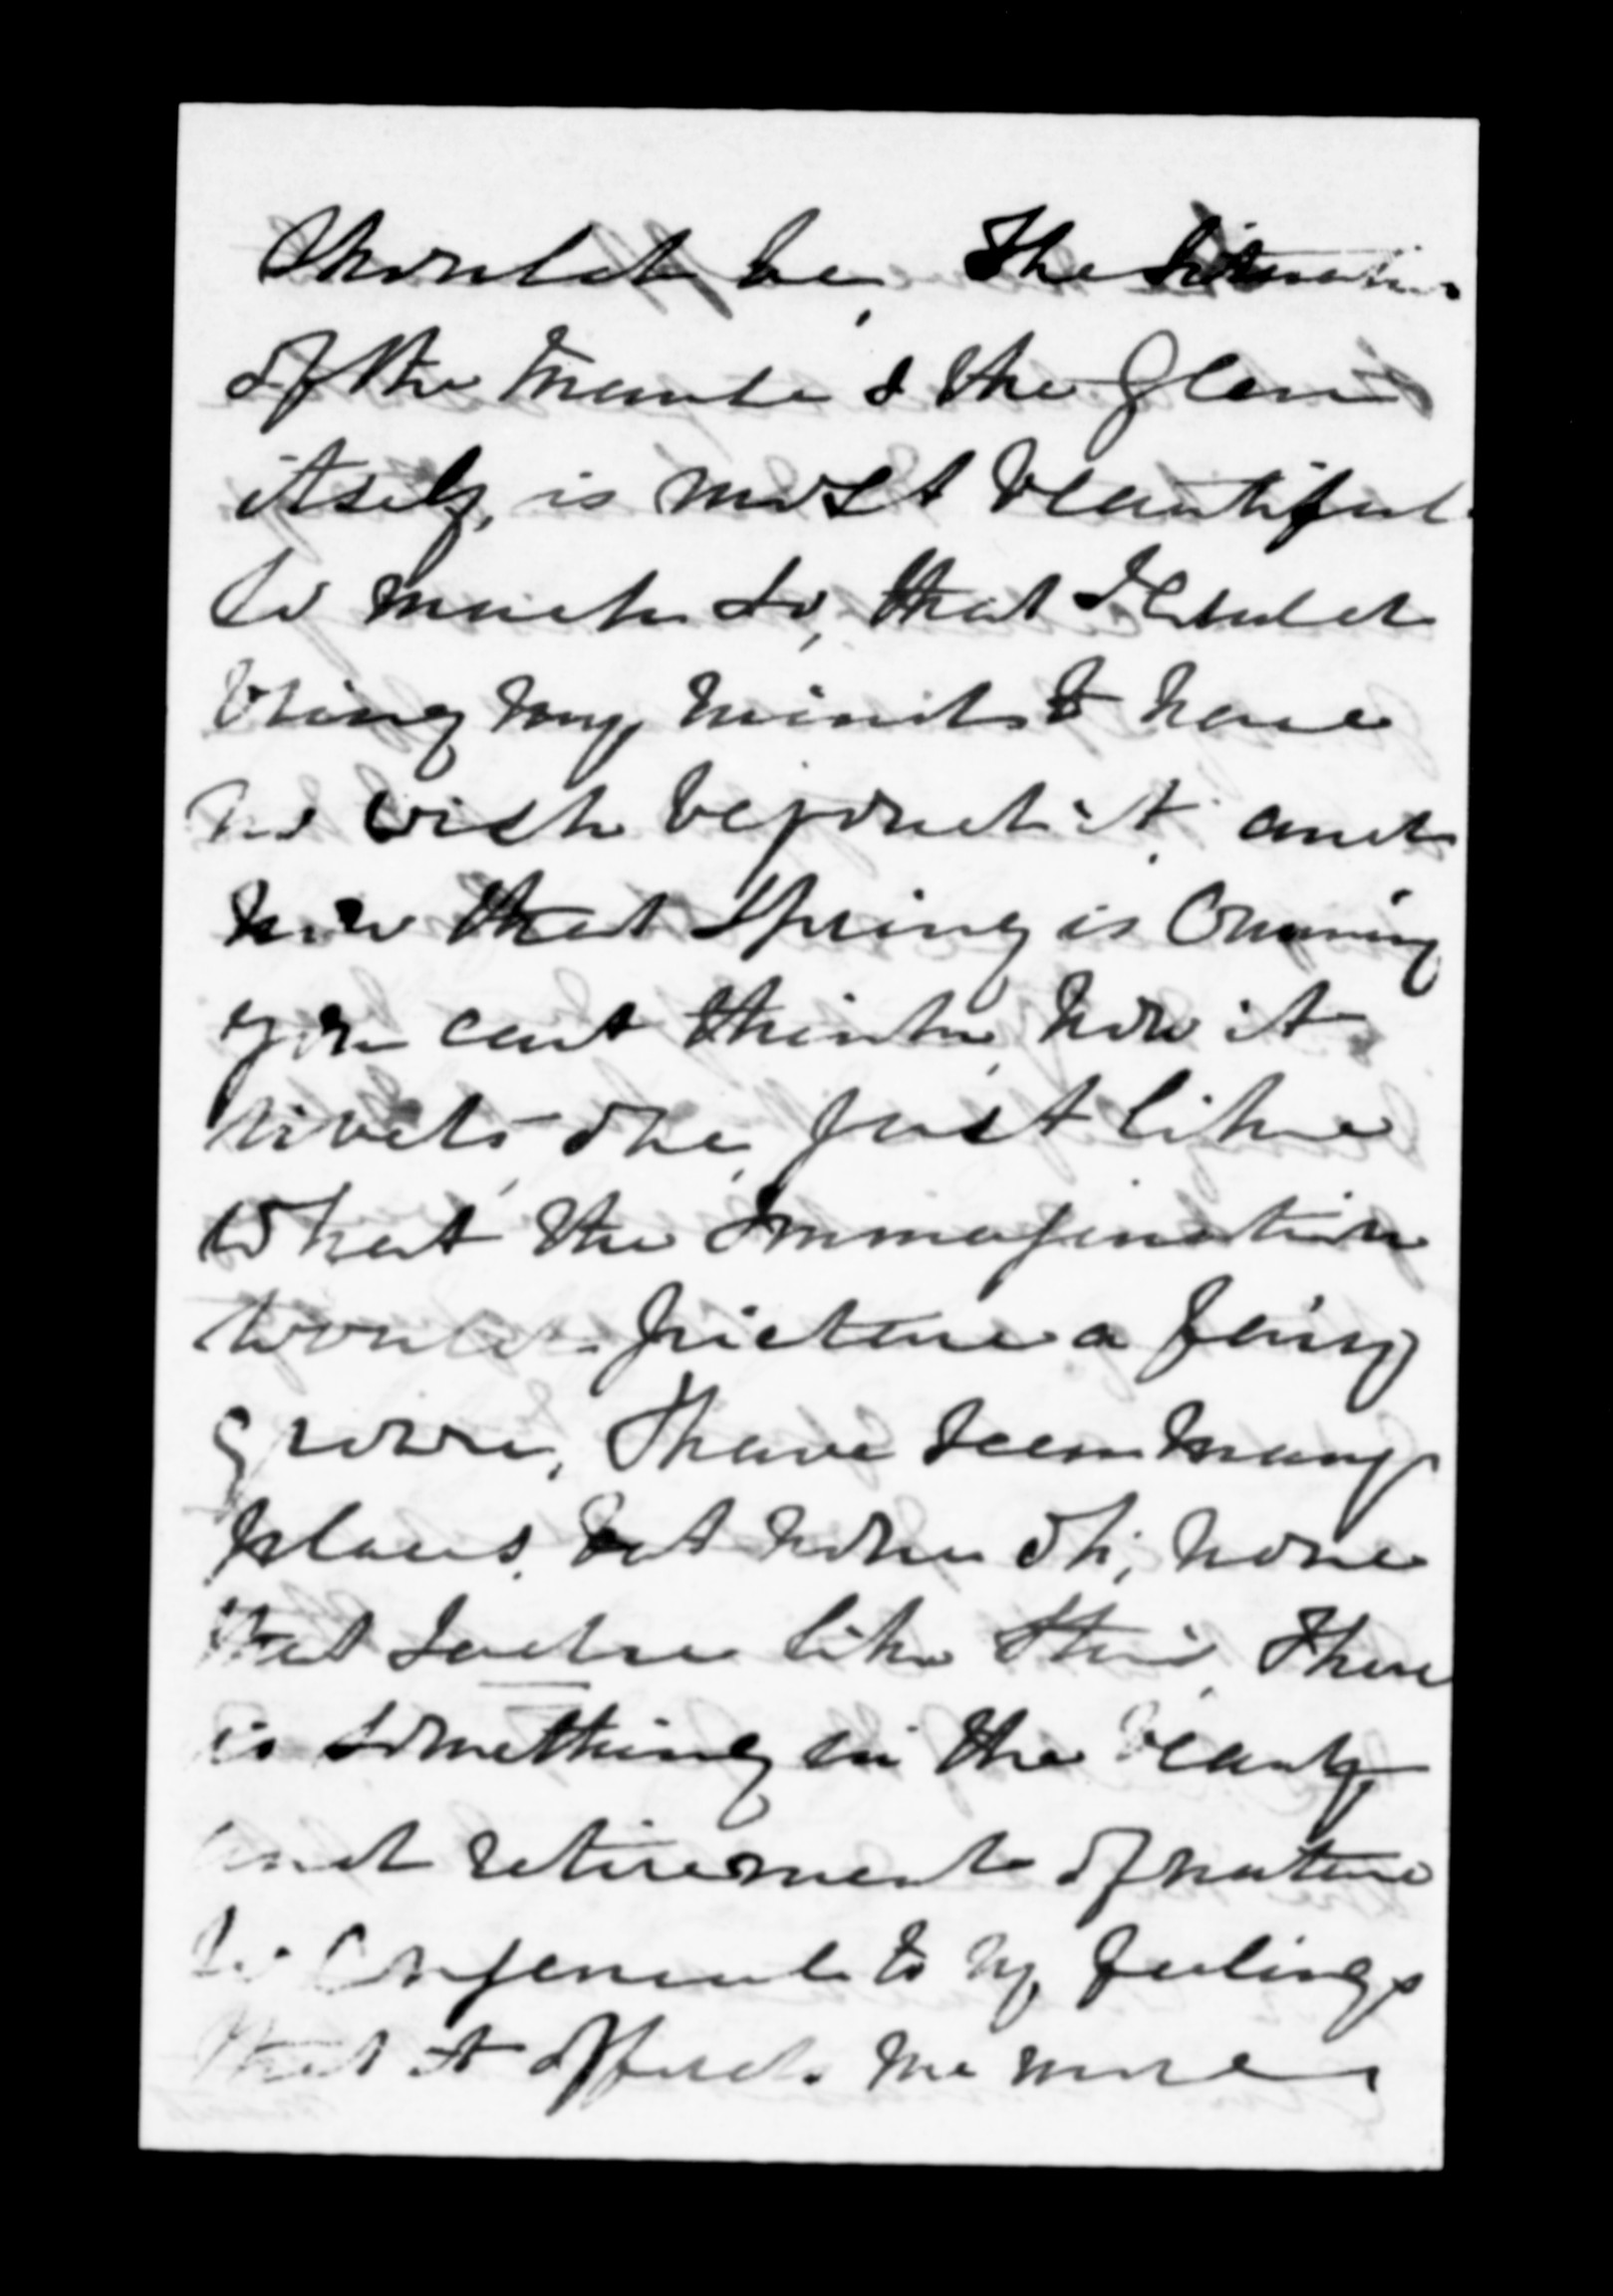 should be, The situation
of the Manse & the Glen
itself, is most beautiful
so much so, that I could
bring my mind to have
no wish beyond it, and
now that Spring is Coming
you cant think, how it
rivets one, just like
what the Immagination
would picture a fairy
grove, I have seen many
places, but none oh, none
that like this, There
is something in the beauty
and retirement of nature
so Congenial to my feelings
that it affords me more